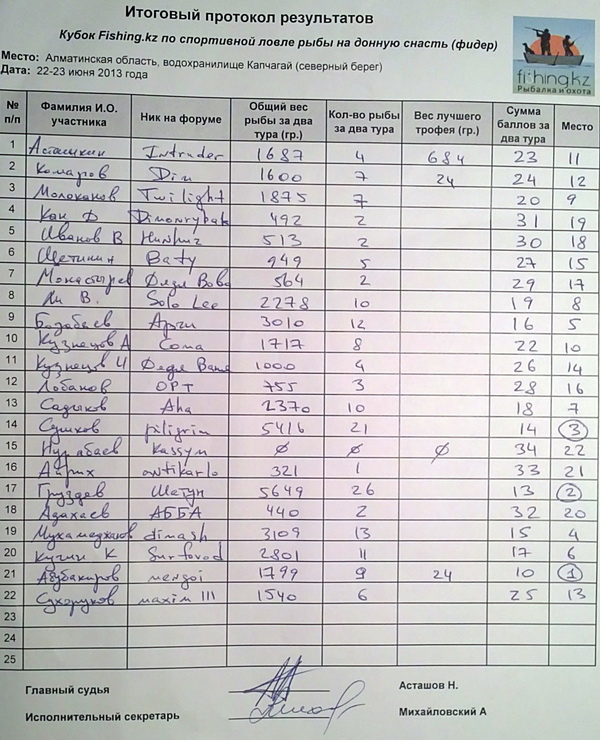 Итоговый протокол результатов
Кубок Fishing.kz по спортивной ловле рыбы на донную снасть (фидер)
Место: Алматинская область, водохранилище Капчагай (северный берег)
Дата: 22-23 июня 2013 года
fishingkz
Рыбалка и охота
№ п/п Фамилия И.О. участника Ник на форуме Общий вес рыбы за два тура (гр.) Кол-во рыбы за два тура Вес лучшего трофея (гр.) Сумма баллов за два тура Место
1 Асташкин Intruder 1687 4 684 23 11
2 Комаров Dim 1600 7 24 24 12
3 Молоканов Twilight 1875 7 20 9
4 Кан Д Dimonrybak 492 2 31 19
5 Иванов В 513 2 30 18
6 Щетинин Baty 949 5 27 15
7 Монастырев Дядя Вова 564 2 29 17
8 Ли В. Solo Lee 2278 10 19 8
9 Базабаев Арчи 3010 12 16 5
10 Кузнецов А Сома 1717 8 22 10
11 Кузнецов И Дядя Ваня 1000 4 26 14
12 Лобанов ОРТ 755 3 28 16
13 Садыков Aha 2370 10 18 7
14 Сушков piligrim 5416 21 14 3
15 Нурабаев Kassym ø ø ø 34 22
16 Айрих antikarlo 321 1 33 21
17 Груздев Шатун 5649 26 13 2
18 Адахаев АББА 440 2 32 20
19 Мухамеджанов dimash 3109 13 15 4
20 Кугин К Surfovod 2801 11 17 6
21 Абубакиров 1799 9 24 10 1
22 Сухоруков maxim III 1540 6 25 13
23
24
25
Главный судья Асташов Н.
Исполнительный секретарь Михайловский А